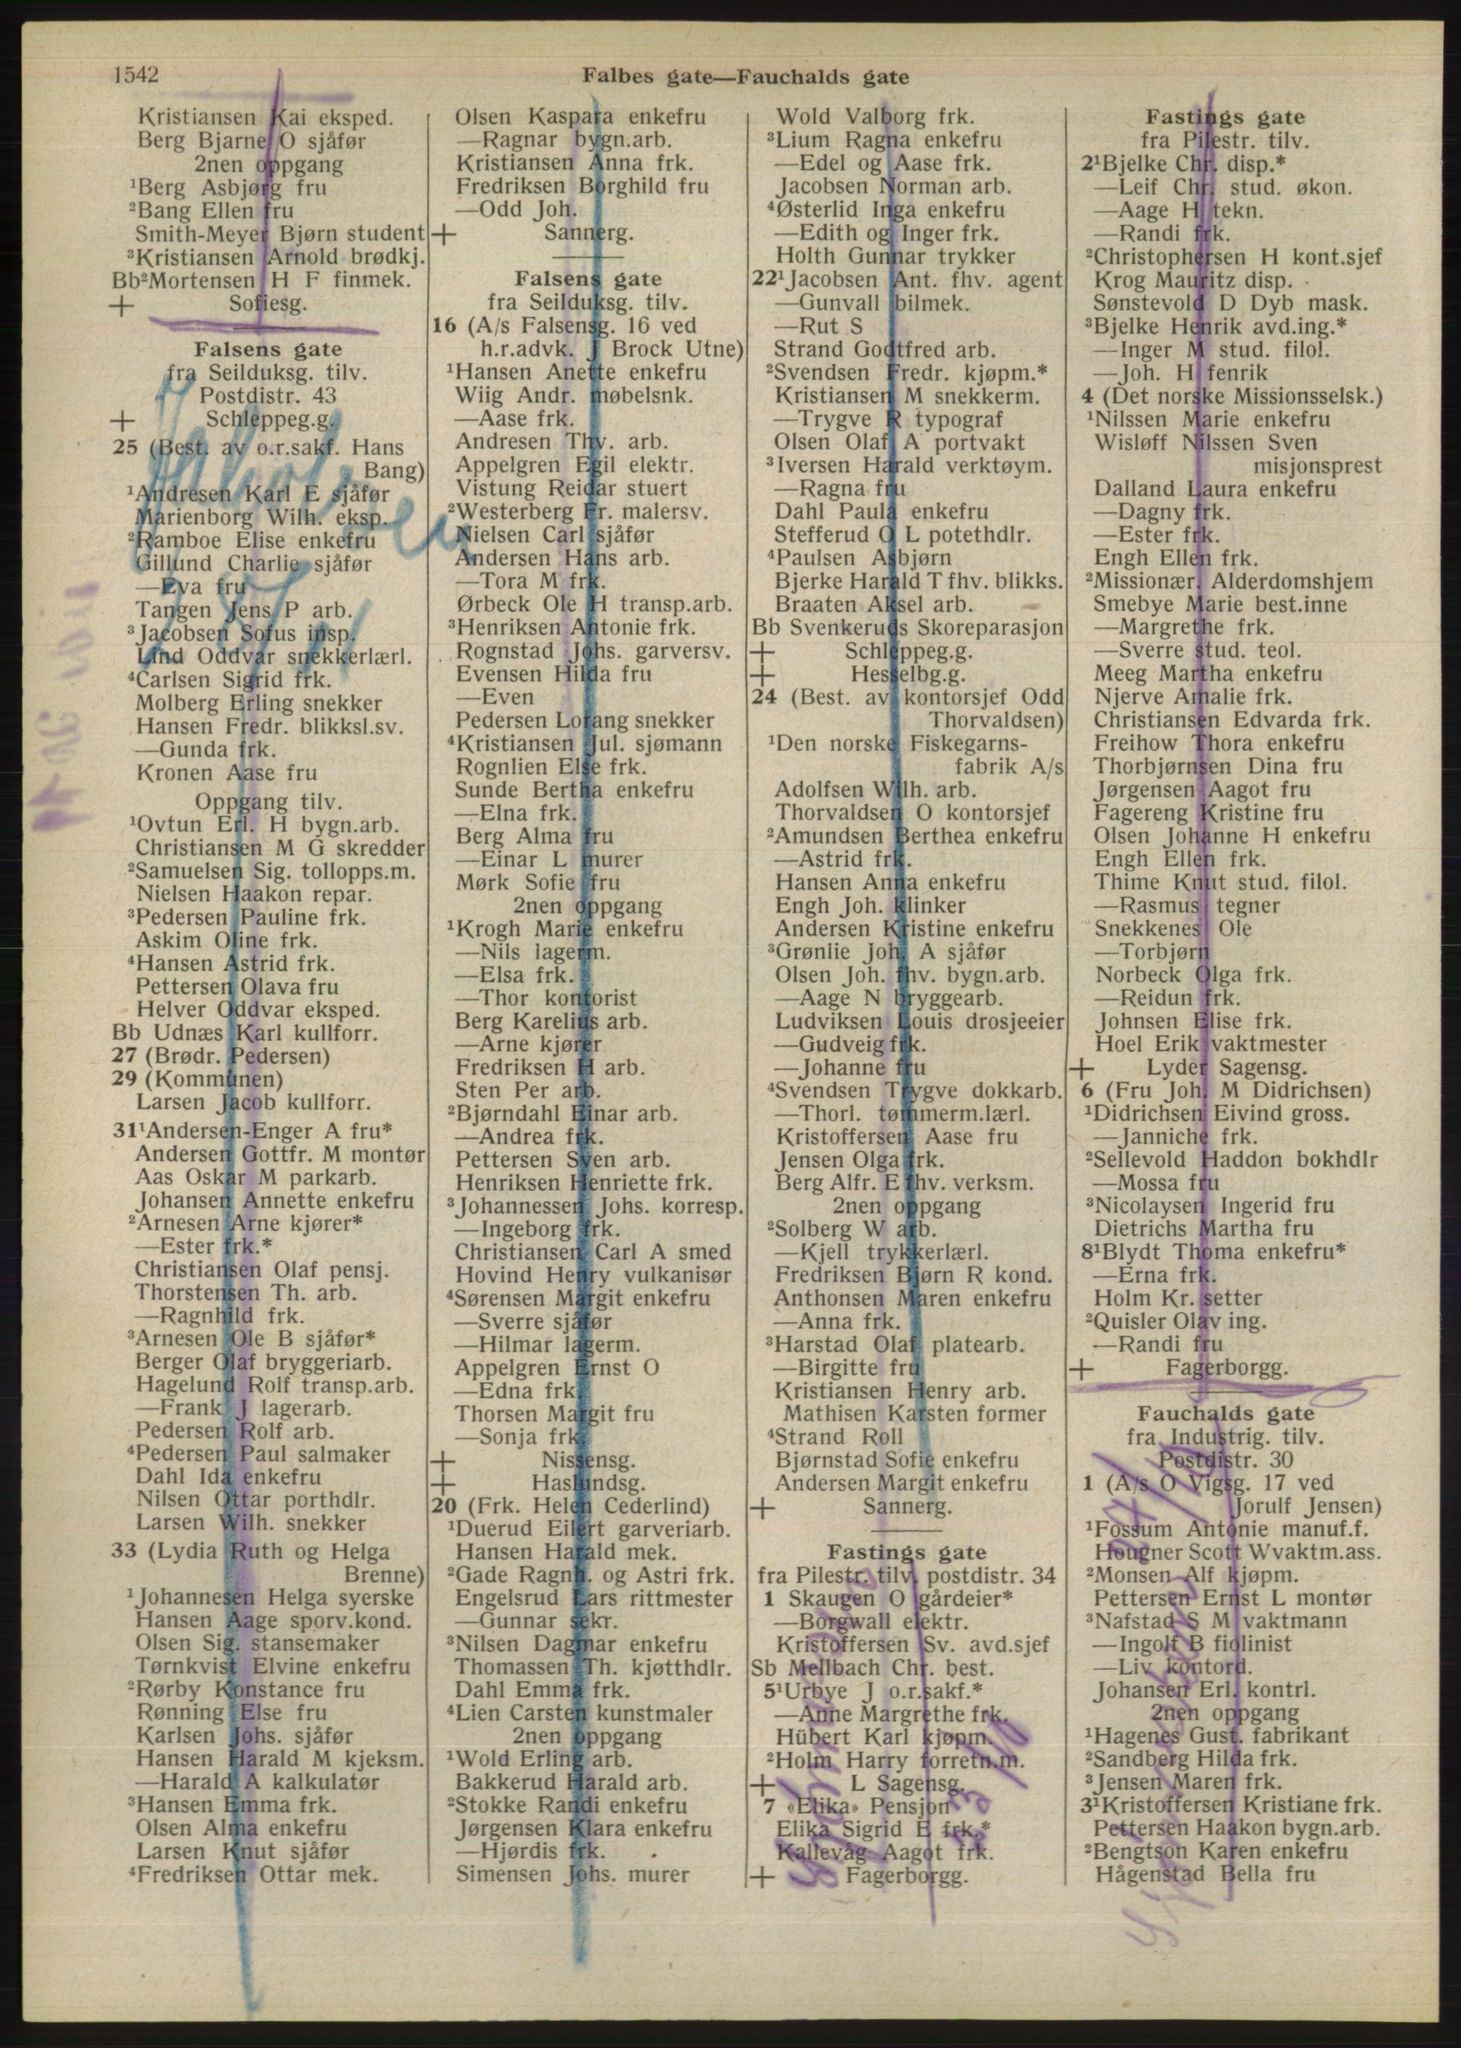 1542
Falbes gate—Fauchalds gate
Kristiansen Kai eksped.
Berg Bjarne O sjåfør
2nen oppgang
¹Berg Asbjørg fru
²Bang Ellen fru
Smith-Meyer Bjørn student
³Kristiansen Arnold brødkj.
Bb²Mortensen H F finmek.
+ Sofiesg.
Falsens gate
fra Seilduksg. tilv.
Postdistr. 43
+ Schleppeg.g.
25 (Best. av o.r.sakf. Hans
Bang)
¹Andresen Karl E sjåfør
Marienborg Wilh. eksp.
²Ramboe Elise enkefru
Gillund Charlie sjåfør
—Eva fru
Tangen Jens P arb.
³Jacobsen Sofus insp.
Lind Oddvar snekkerlærl.
⁴Carlsen Sigrid frk.
Molberg Erling snekker
Hansen Fredr. blikksl.sv.
—Gunda frk.
Kronen Aase fru
Oppgang tilv.
¹Ovtun Erl. H bygn.arb.
Christiansen M G skredder
²Samuelsen Sig. tollopps.m.
Nielsen Haakon repar.
³Pedersen Pauline frk.
Askim Oline frk.
⁴Hansen Astrid frk.
Pettersen Olava fru
Helver Oddvar eksped.
Bb Udnæs Karl kullforr.
27 (Brødr. Pedersen)
29 (Kommunen)
Larsen Jacob kullforr.
31¹Andersen-Enger A fru*
Andersen Gottfr. M montør
Aas Oskar M parkarb.
Johansen Annette enkefru
²Arnesen Arne kjører*
—Ester frk.*
Christiansen Olaf pensj.
Thorstensen Th. arb.
—Ragnhild frk.
³Arnesen Ole B sjåfør*
Berger Olaf bryggeriarb.
Hagelund Rolf transp.arb.
—Frank J lagerarb.
Pedersen Rolf arb.
⁴Pedersen Paul salmaker
Dahl Ida enkefru
Nilsen Ottar porthdlr.
Larsen Wilh. snekker
33 (Lydia Ruth og Helga
Brenne)
¹Johannesen Helga syerske
Hansen Aage sporv.kond.
Olsen Sig. stansemaker
Tørnkvist Elvine enkefru
²Rørby Konstance fru
Rønning Else fru
Karlsen Johs. sjåfør
Hansen Harald M kjeksm.
—Harald A kalkulatør
³Hansen Emma frk.
Olsen Alma enkefru
Larsen Knut sjåfør
⁴Fredriksen Ottar mek.
Olsen Kaspara enkefru
—Ragnar bygn.arb.
Kristiansen Anna frk.
Fredriksen Borghild fru
—Odd Joh.
+ Sannerg.
Falsens gate
fra Seilduksg. tilv.
16 (A/s Falsensg. 16 ved
h.r.advk. J Brock Utne)
¹Hansen Anette enkefru
Wiig Andr. møbelsnk.
—Aase frk.
Andresen Thv. arb.
Appelgren Egil elektr.
Vistung Reidar stuert
²Westerberg Fr. malersv.
Nielsen Carl sjåfør
Andersen Hans arb.
—Tora M frk.
Ørbeck Ole H transp.arb.
³Henriksen Antonie frk.
Rognstad Johs. garversv.
Evensen Hilda fru
—Even
Pedersen Lorang snekker
⁴Kristiansen Jul. sjømann
Rognlien Else frk.
Sunde Bertha enkefru
—Elna frk.
Berg Alma fru
—Einar L murer
Mørk Sofie fru
2nen oppgang
¹Krogh Marie enkefru
—Nils lagerm.
—Elsa frk.
—Thor kontorist
Berg Karelius arb.
—Arne kjører
Fredriksen H arb.
Sten Per arb.
²Bjørndahl Einar arb.
—Andrea frk.
Pettersen Sven arb.
Henriksen Henriette frk.
³Johannessen Johs. korresp.
—Ingeborg frk.
Christiansen Carl A smed
Hovind Henry vulkanisør
⁴Sørensen Margit enkefru
—Sverre sjåfør
—Hilmar lagerm.
Appelgren Ernst O
—Edna frk.
Thorsen Margit fru
—Sonja frk.
+ Nissensg.
+ Haslundsg.
20 (Frk. Helen Cederlind)
¹Duerud Eilert garveriarb.
Hansen Harald mek.
²Gade Ragnh. og Astri frk.
Engelsrud Lars rittmester
—Gunnar sekr.
³Nilsen Dagmar enkefru
Thomassen Th. kjøtthdlr.
Dahl Emma frk.
⁴Lien Carsten kunstmaler
2nen oppgang
¹Wold Erling arb.
Bakkerud Harald arb.
²Stokke Randi enkefru
Jørgensen Klara enkefru
—Hjørdis frk.
Simensen Johs. murer
Wold Valborg frk.
³Lium Ragna enkefru
—Edel og Aase frk.
Jacobsen Norman arb.
⁴Østerlid Inga enkefru
—Edith og Inger frk.
Holth Gunnar trykker
22¹Jacobsen Ant. fhv. agent
—Gunvall bilmek.
—Rut S
Strand Godtfred arb.
²Svendsen Fredr. kjøpm.*
Kristiansen M snekkerm.
—Trygve R typograf
Olsen Olaf A portvakt
³Iversen Harald verktøym.
—Ragna fru
Dahl Paula enkefru
Stefferud O L potethdlr.
⁴Paulsen Asbjørn
Bjerke Harald T fhv. blikks.
Braaten Aksel arb.
Bb Svenkeruds Skoreparasjon
+ Schleppeg.g.
+ Hesselbg.g.
24 (Best. av kontorsjef Odd
Thorvaldsen)
¹Den norske Fiskegarns-
fabrik A/s
Adolfsen Wilh. arb.
Thorvaldsen O kontorsjef
²Amundsen Berthea enkefru
—Astrid frk.
Hansen Anna enkefru
Engh Joh. klinker
Andersen Kristine enkefru
³Grønlie Joh. A sjåfør
Olsen Joh. fhv. bygn.arb.
—Aage N bryggearb.
Ludviksen Louis drosjeeier
—Gudveig frk.
—Johanne fru
⁴Svendsen Trygve dokkarb.
—Thorl. tømmerm.lærl.
Kristoffersen Aase fru
Jensen Olga frk.
Berg Alfr. E fhv. verksm.
2nen oppgang
²Solberg W arb.
—Kjell trykkerlærl.
Fredriksen Bjørn R kond.
Anthonsen Maren enkefru
—Anna frk.
³Harstad Olaf platearb.
—Birgitte fru
Kristiansen Henry arb.
Mathisen Karsten former
⁴Strand Roll
Bjørnstad Sofie enkefru
Andersen Margit enkefru
+ Sannerg.
Fastings gate
fra Pilestr. tilv. postdistr. 34
1 Skaugen O gårdeier*
—Borgwall elektr.
Kristoffersen Sv. avd.sjef
Sb Mellbach Chr. best.
5¹Urbye J o.r.sakf.*
—Anne Margrethe frk.
Hübert Karl kjøpm.
²Holm Harry forretn.m.
+ L Sagensg.
7 «Elika» Pensjon
Elika Sigrid E frk.*
Kallevåg Aagot frk.
+ Fagerborgg.
Fastings gate
fra Pilestr. tilv.
2¹Bjelke Chr. disp.*
—Leif Chr. stud. økon.
—Aage H tekn.
—Randi frk.
²Christophersen H kont.sjef
Krog Mauritz disp.
Sønstevold D Dyb mask.
³Bjelke Henrik avd.ing.*
—Inger M stud. filol.
—Joh. H fenrik
4 (Det norske Missionsselsk.)
¹Nilssen Marie enkefru
Wisløff Nilssen Sven
misjonsprest
Dalland Laura enkefru
—Dagny frk.
—Ester frk.
Engh Ellen frk.
²Missionær. Alderdomshjem
Smebye Marie best.inne
—Margrethe frk.
—Sverre stud. teol.
Meeg Martha enkefru
Njerve Amalie frk.
Christiansen Edvarda frk.
Freihow Thora enkefru
Thorbjørnsen Dina fru
Jørgensen Aagot fru
Fagereng Kristine fru
Olsen Johanne H enkefru
Engh Ellen frk.
Thime Knut stud. filol.
—Rasmus tegner
Snekkenes Ole
—Torbjørn
Norbeck Olga frk.
—Reidun frk.
Johnsen Elise frk.
Hoel Erik vaktmester
+ Lyder Sagensg.
6 (Fru Joh. M Didrichsen)
¹Didrichsen Eivind gross.
—Janniche frk.
²Sellevold Haddon bokhdlr
—Mossa fru
³Nicolaysen Ingerid fru
Dietrichs Martha fru
8¹Blydt Thoma enkefru*
—Erna frk.
Holm Kr. setter
²Quisler Olav ing.
—Randi fru
+ Fagerborgg.
Fauchalds gate
fra Industrig. tilv.
Postdistr. 30
1 (A/s O Vigsg. 17 ved
Jorulf Jensen)
¹Fossum Antonie manuf.f.
Hougner Scott W vaktm.ass.
²Monsen Alf kjøpm.
Pettersen Ernst L montør
³Nafstad S M vaktmann
—Ingolf B fiolinist
—Liv kontord.
Johansen Erl. kontrl.
2nen oppgang
¹Hagenes Gust. fabrikant
²Sandberg Hilda frk.
³Jensen Maren frk.
3¹Kristoffersen Kristiane frk.
Pettersen Haakon bygn.arb.
²Bengtson Karen enkefru
Hågenstad Bella fru
23/10